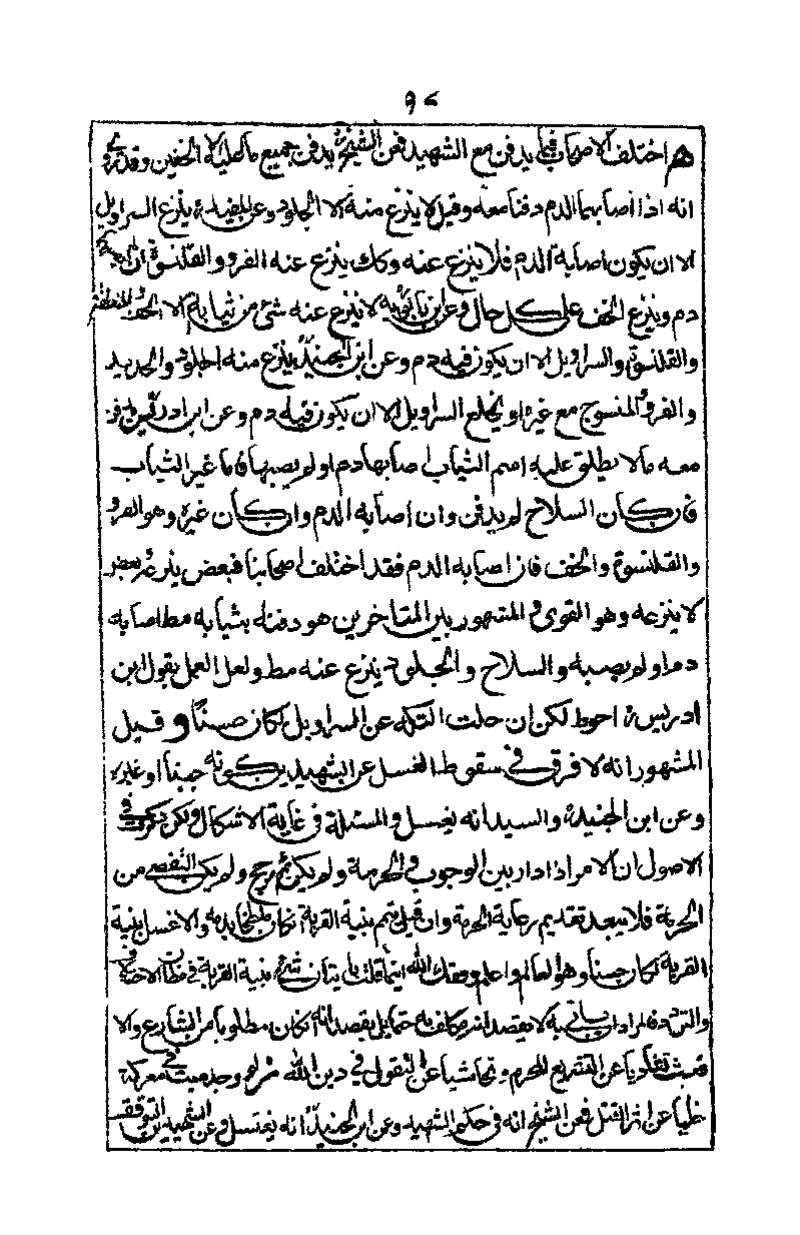 ٩٨
هم اختلف الاصحاب فيما يدفن مع الشهيد فعن الشيخ ره يدفن جميع ما عليه الا الخفين وقد روى
انه اذا اصابهما الدم دفنا معه وقيل لا ينزع منه الا الجلود وعن المفيد ره ينزع السراويل
الا ان يكون اصابه الدم فلا ينزع عنه وكك ينزع عنه الفرو والقلنسوة
دم وينزع الخف على كل حال وعن ابن بابويه لا ينزع عنه شئ من ثيابه الا الخف
والقلنسوة والسراويل الا ان يكون فيه دم وعن ابن الجنيد ينزع منه الجلود والحديد
والفرو المنسوج مع غيره او يخلع السراويل الا ان يكون فيه دم وعن ابن ادريس يدفن
معه ما لا يطلق عليه اسم الثياب اصابها دم او لم يصبها فاما غير الثياب
فان كان السلاح لم يدفن وان اصابه الدم وان كان غيره وهو الفرو
والقلنسوة والخف فان اصابه الدم فقد اختلف اصحابنا فبعض ينزعه وبعض
لا ينزعه وهو القوى والمشهور بين المتاخرين هو دفنه بثيابه مط اصابه
دم او لم يصبه والسلاح والجلود ينزع عنه مط ولعل العمل بقول ابن
ادريس ره احوط لكن ان حلت التكه عن السراويل لكان حسنًا و قيل
المشهور انه لا فرق في سقوط الغسل عن الشهيد بين كونه جنبا او غيره
وعن ابن الجنيد ره والسيد انه يغسل والمسئلة في غاية الاشكال ولكن ذكرت في
الاصول ان الامر اذا دار بين الوجوب والحرمة ولم يكن ثم رجح ولم يكن التفصي من
الحرمة فلا يبعد تقديم رعاية الحرمة وان قيل يتمم بنية القربة ان كان مط بدمه والا غسل بنية
القربة لكان حسنا وهو العالم واعلم وفقك الله انما قلت بايتان شئ بنية القربة في مظان الاحتياط
والتردد فالمراد ان ياتى به لا بقصد انه مكلف به حتما بل بقصد انه ان كان مطلوبا من الشارع والا
فعبث تفاديا عن التشريع المحرم وتحاشيا عن التقول في دين الله من لو وجد ميت في معركة
خليا عن اثر القتل فعن الشيخ انه في حكم الشهيد وعن ابن الجنيد انه يغتسل وعن الشهيدين التوقف